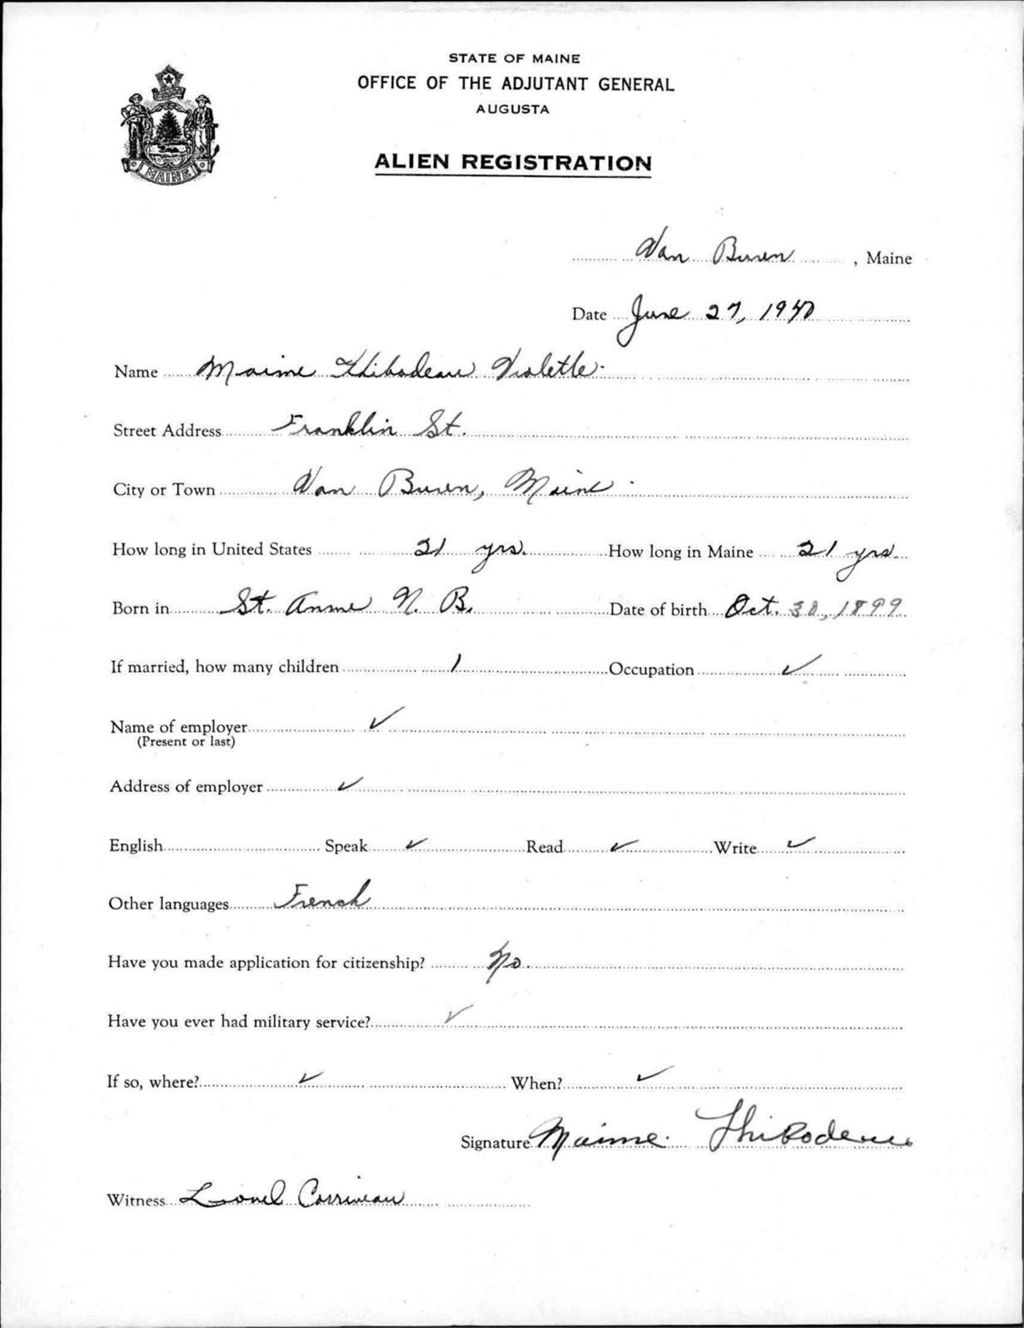 STATE OF MAINE
OFFICE OF THE ADJUTANT GENERAL
AUGUSTA
ALIEN REGISTRATION
MAINE
Van Buren, Maine
Date June 27, 1940
Name Maime Thibodeau Violette.
Street Address Franklin St.
City or Town Van Buren, Maine.
How long in United States 21 yrs. How long in Maine 21 yrs.
Born in St. Anne N. B. Date of birth Oct. 30, 1899
If married, how many children 1 Occupation ✓
Name of employer ✓
(Present or last)
Address of employer ✓
English Speak ✓ Read ✓ Write ✓
Other languages French
Have you made application for citizenship? No.
Have you ever had military service? ✓
If so, where? ✓ When? ✓
Signature Maime Thibodeau
Witness Lionel Corriveau